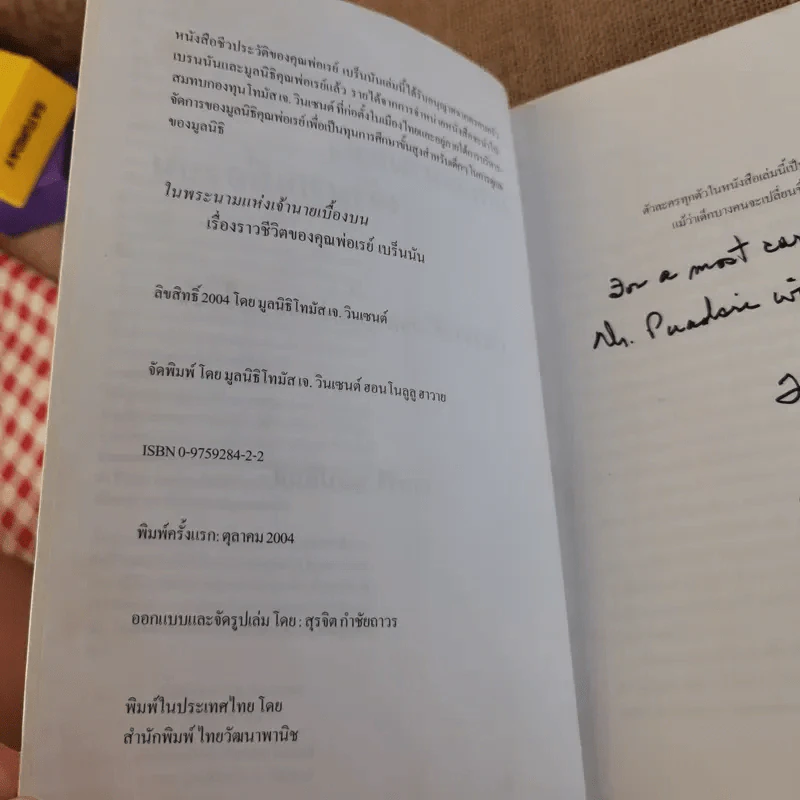 หนังสือชีวประวัติของคุณพ่อเรย์ เบร็นนันเล่มนี้ได้รับอนุญาตจากครอบครัว
เบรนนันและมูลนิธิคุณพ่อเรย์แล้ว รายได้จากการจำหน่ายหนังสือจะนำไป
สมทบกองทุนโทมัส เจ. วินเซนต์ ที่ก่อตั้งในเมืองไทยและอยู่ภายใต้การบริหาร
จัดการของมูลนิธิคุณพ่อเรย์เพื่อเป็นทุนการศึกษาขั้นสูงสำหรับเด็กๆ ในการดูแล
ของมูลนิธิ
ในพระนามแห่งเจ้านายเบื้องบน
เรื่องราวชีวิตของคุณพ่อเรย์ เบร็นนัน
ลิขสิทธิ์ 2004 โดย มูลนิธิโทมัส เจ. วินเซนต์
จัดพิมพ์ โดย มูลนิธิโทมัส เจ. วินเซนต์ ฮอนโนลูลู ฮาวาย
ISBN 0-9759284-2-2
พิมพ์ครั้งแรก: ตุลาคม 2004
ออกแบบและจัดรูปเล่ม โดย : สุรจิต กำชัยถาวร
พิมพ์ในประเทศไทย โดย
สำนักพิมพ์ ไทยวัฒนาพานิช
ตัวละครทุกตัวในหนังสือเล่มนี้เป็น
แม้ว่าเด็กบางคนจะเปลี่ยนชื่อ
For a most
SATURDAY